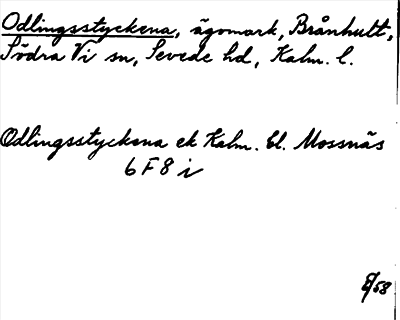 Odlingsstyckena, ägomark, Brånhult,
Södra Vi sn, Sevede hd, Kalm. l.
Odlingsstyckena ek Kalm. bl. Mossnäs
6 F 8 i